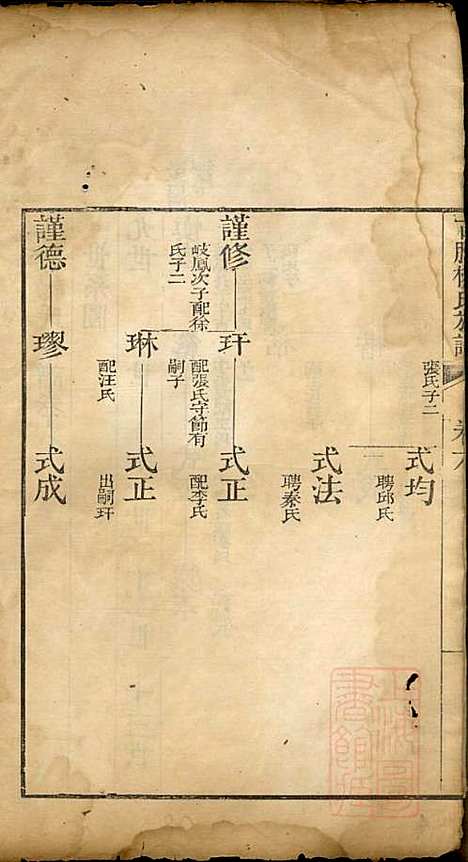 張氏子二
式均
聘邱氏
式法
聘秦氏
謹修
岐鳳次子配徐
氏子二
玕
配張氏守節有
嗣子
式正
配李氏
琳
配汪氏
式正
出嗣玕
謹德
璆
式成